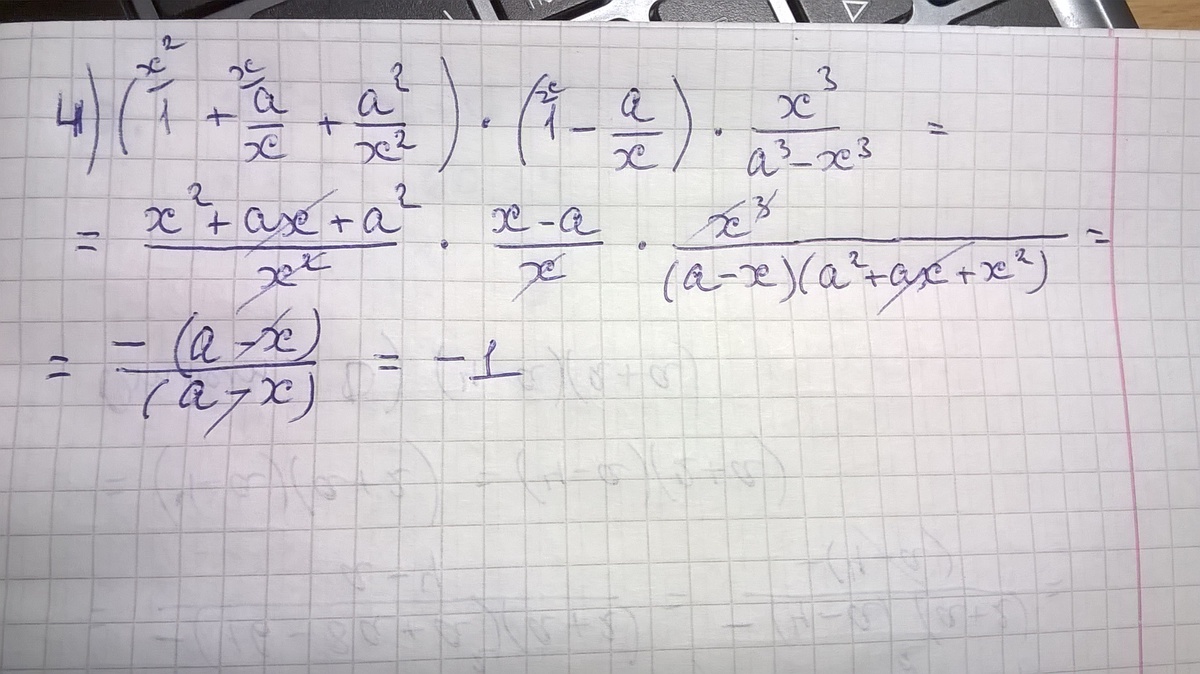 4) (1 + a/x + a²/x²) · (1 - a/x) · x³/(a³-x³) =
= (x²+ax+a²)/x² · (x-a)/x · x³/((a-x)(a²+ax+x²)) =
= -(a-x)/(a-x) = -1